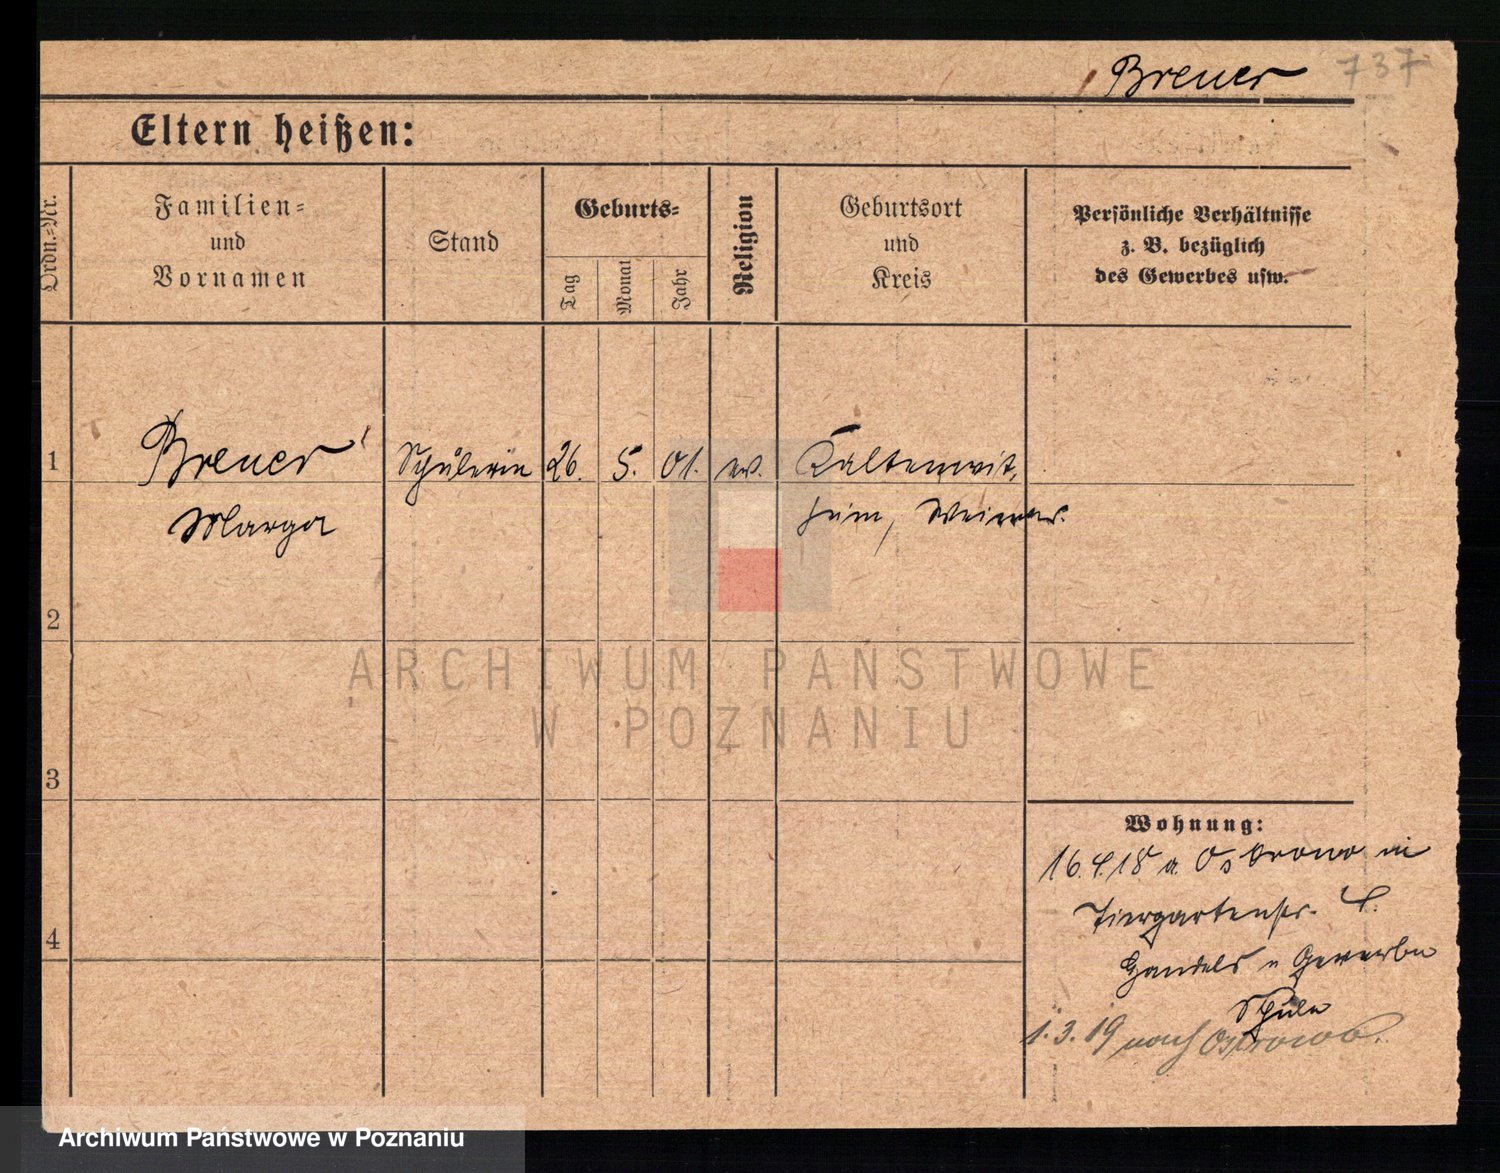 Breuer 737
Eltern heißen:
Ordn.-Nr.
Familien-
und
Vornamen
Stand
Geburts-
Tag
Monat
Jahr
Religion
Geburtsort
und
Kreis
Persönliche Verhältnisse
z. B. bezüglich
des Gewerbes usw.
1 Breuer Schülerin 26. 5. 01. ev.
Marga Weimar.
2
3
4
Wohnung:
16.4.18 a. Ostrowo in
Tiergartenstr. 4.
Handels u Gewerbe
Schule
1.3.19 nach Ostrowo.
ARCHIWUM PAŃSTWOWE
W POZNANIU
Archiwum Państwowe w Poznaniu